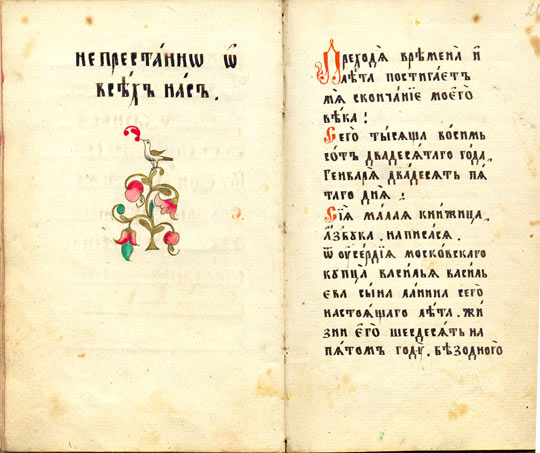 непреста́ннѡ ѿ
всѣ́хъ на́съ.
Преходѧ̀ врѣмена̀ и҆
лѣ́та постига́етъ
мѧ̀ сконча́нїе моегѡ̀
вѣ́ка:
Сегѡ̀ ты́сѧща во́симь
со́тъ двадесѧ́таго го́да
Генварѧ̀ два́десѧть пѧ́
таго днѧ̀:
Сїѧ̀ ма́лаѧ кни́жица,
а҆́звука. написа́сѧ.
ѿ оу҆се́рдїѧ моско́вскаго
купца̀ васи́льѧ васи́ль
ева сы́на ла́нина сего̀
настоѧ́щаго лѣ́та. жи́
зни егѡ̀ шесдесѧ́ть на
пѧ́томъ годꙋ̀. бѣзо́дного